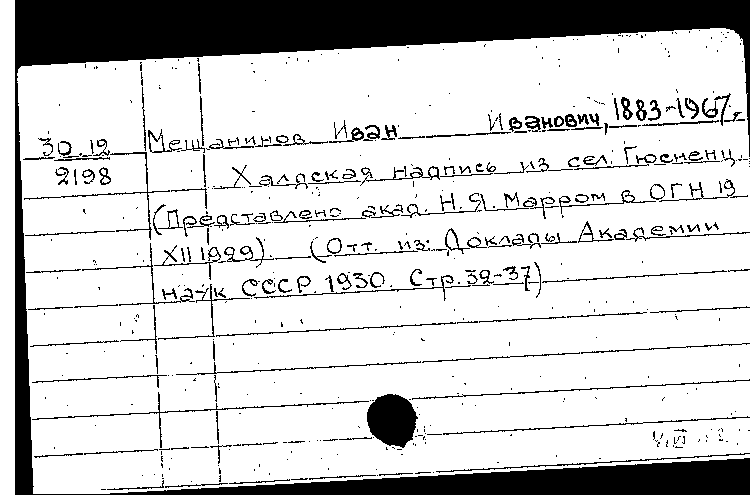 30.12 Мещанинов Иван Иванович, 1883-1967.
2198 Халдская надпись из сел. Гюсненц.
(Представлено акад. Н.Я. Марром в ОГН 19
XII 1929). (Отт. из: Доклады Академии
наук СССР. 1930. Стр. 32-37)